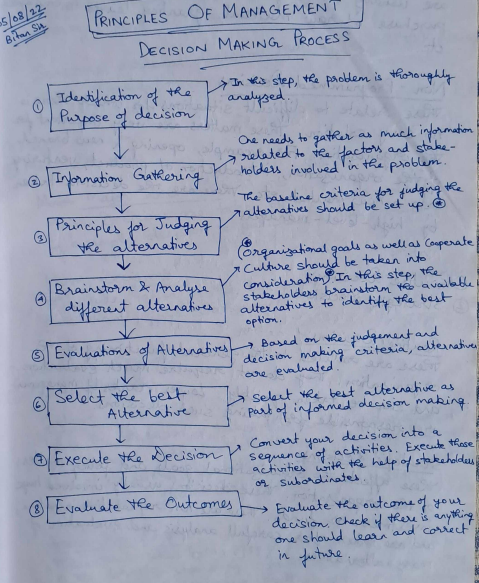 05/08/22
Bitan SH
PRINCIPLES OF MANAGEMENT
DECISION MAKING PROCESS
① Identification of the
Purpose of decision
In this step, the problem is thoroughly
analyzed.
② Information Gathering
One needs to gather as much information
related to the factors and stake-
holders involved in the problem.
③ Principles for Judging
the alternatives
The baseline criteria for judging the
alternatives should be set up. *
④ Brainstorm & Analyse
different alternatives
* (Organizational goals as well as Cooperate
Culture should be taken into
consideration)* In this step, the
stakeholders brainstorm the available
alternatives to identify the best
option.
⑤ Evaluations of Alternatives
Based on the judgement and
decision making criteria, alternatives
are evaluated.
⑥ Select the best
Alternative
Select the best alternative as
part of informed decision making
⑦ Execute the Decision
Convert your decision into a
sequence of activities. Execute those
activities with the help of stakeholders
or subordinates.
⑧ Evaluate the Outcomes
Evaluate the outcome of your
decision. Check if there is anything
one should learn and correct
in future.